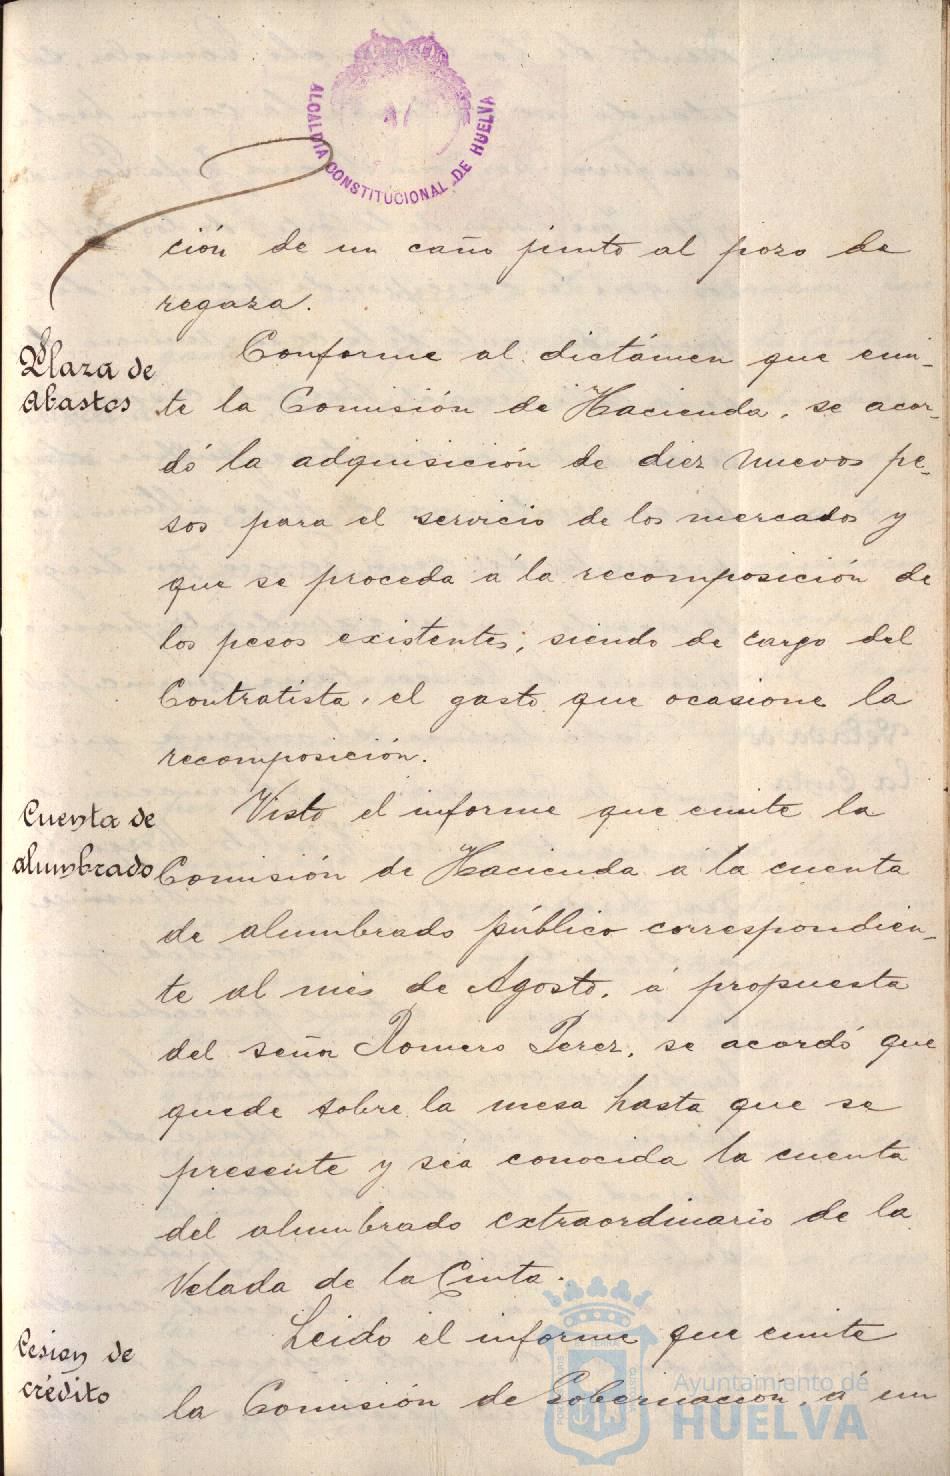 ALCALDIA CONSTITUCIONAL DE HUELVA
ción de un caño junto al pozo de
regaza.
Plaza de
Abastos
Conforme al dictámen que emi-
te la Comisión de Hacienda, se acor-
dó la adquisición de diez nuevos pe-
sos para el servicio de los mercados y
que se proceda á la recomposición de
los pesos existentes, siendo de cargo del
Contratista, el gasto que ocasione la
recomposición.
Cuenta de
alumbrado
Visto el informe que emite la
Comisión de Hacienda á la cuenta
de alumbrado público correspondien-
te al mes de Agosto, á propuesta
del señor Romero Perez, se acordó que
quede sobre la mesa hasta que se
presente y sea conocida la cuenta
del alumbrado extraordinario de la
Velada de la Cinta.
Cesion de
crédito
Leido el informe que emite
la Comisión de Gobernación, á un
Ayuntamiento de
HUELVA